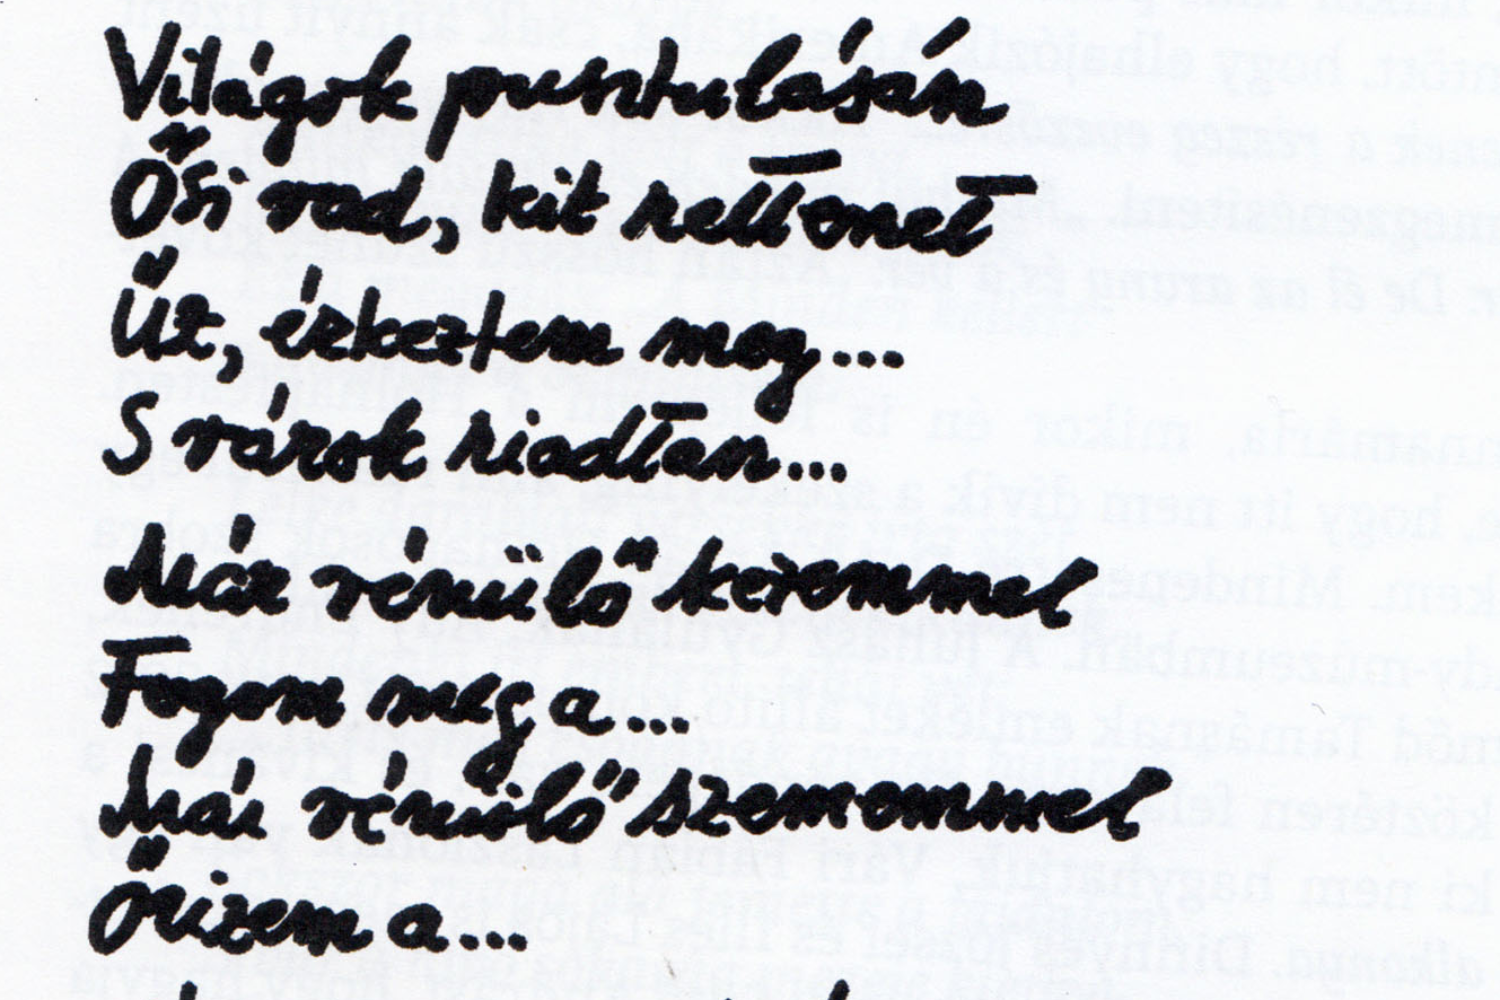 Világok pusztulásán
Ősi vad, kit rettenet
Űz, érkeztem meg...
S várok riadtan...
Már vénülő kezemmel
Fogom meg a...
Már vénülő szememmel
Őrizem a...